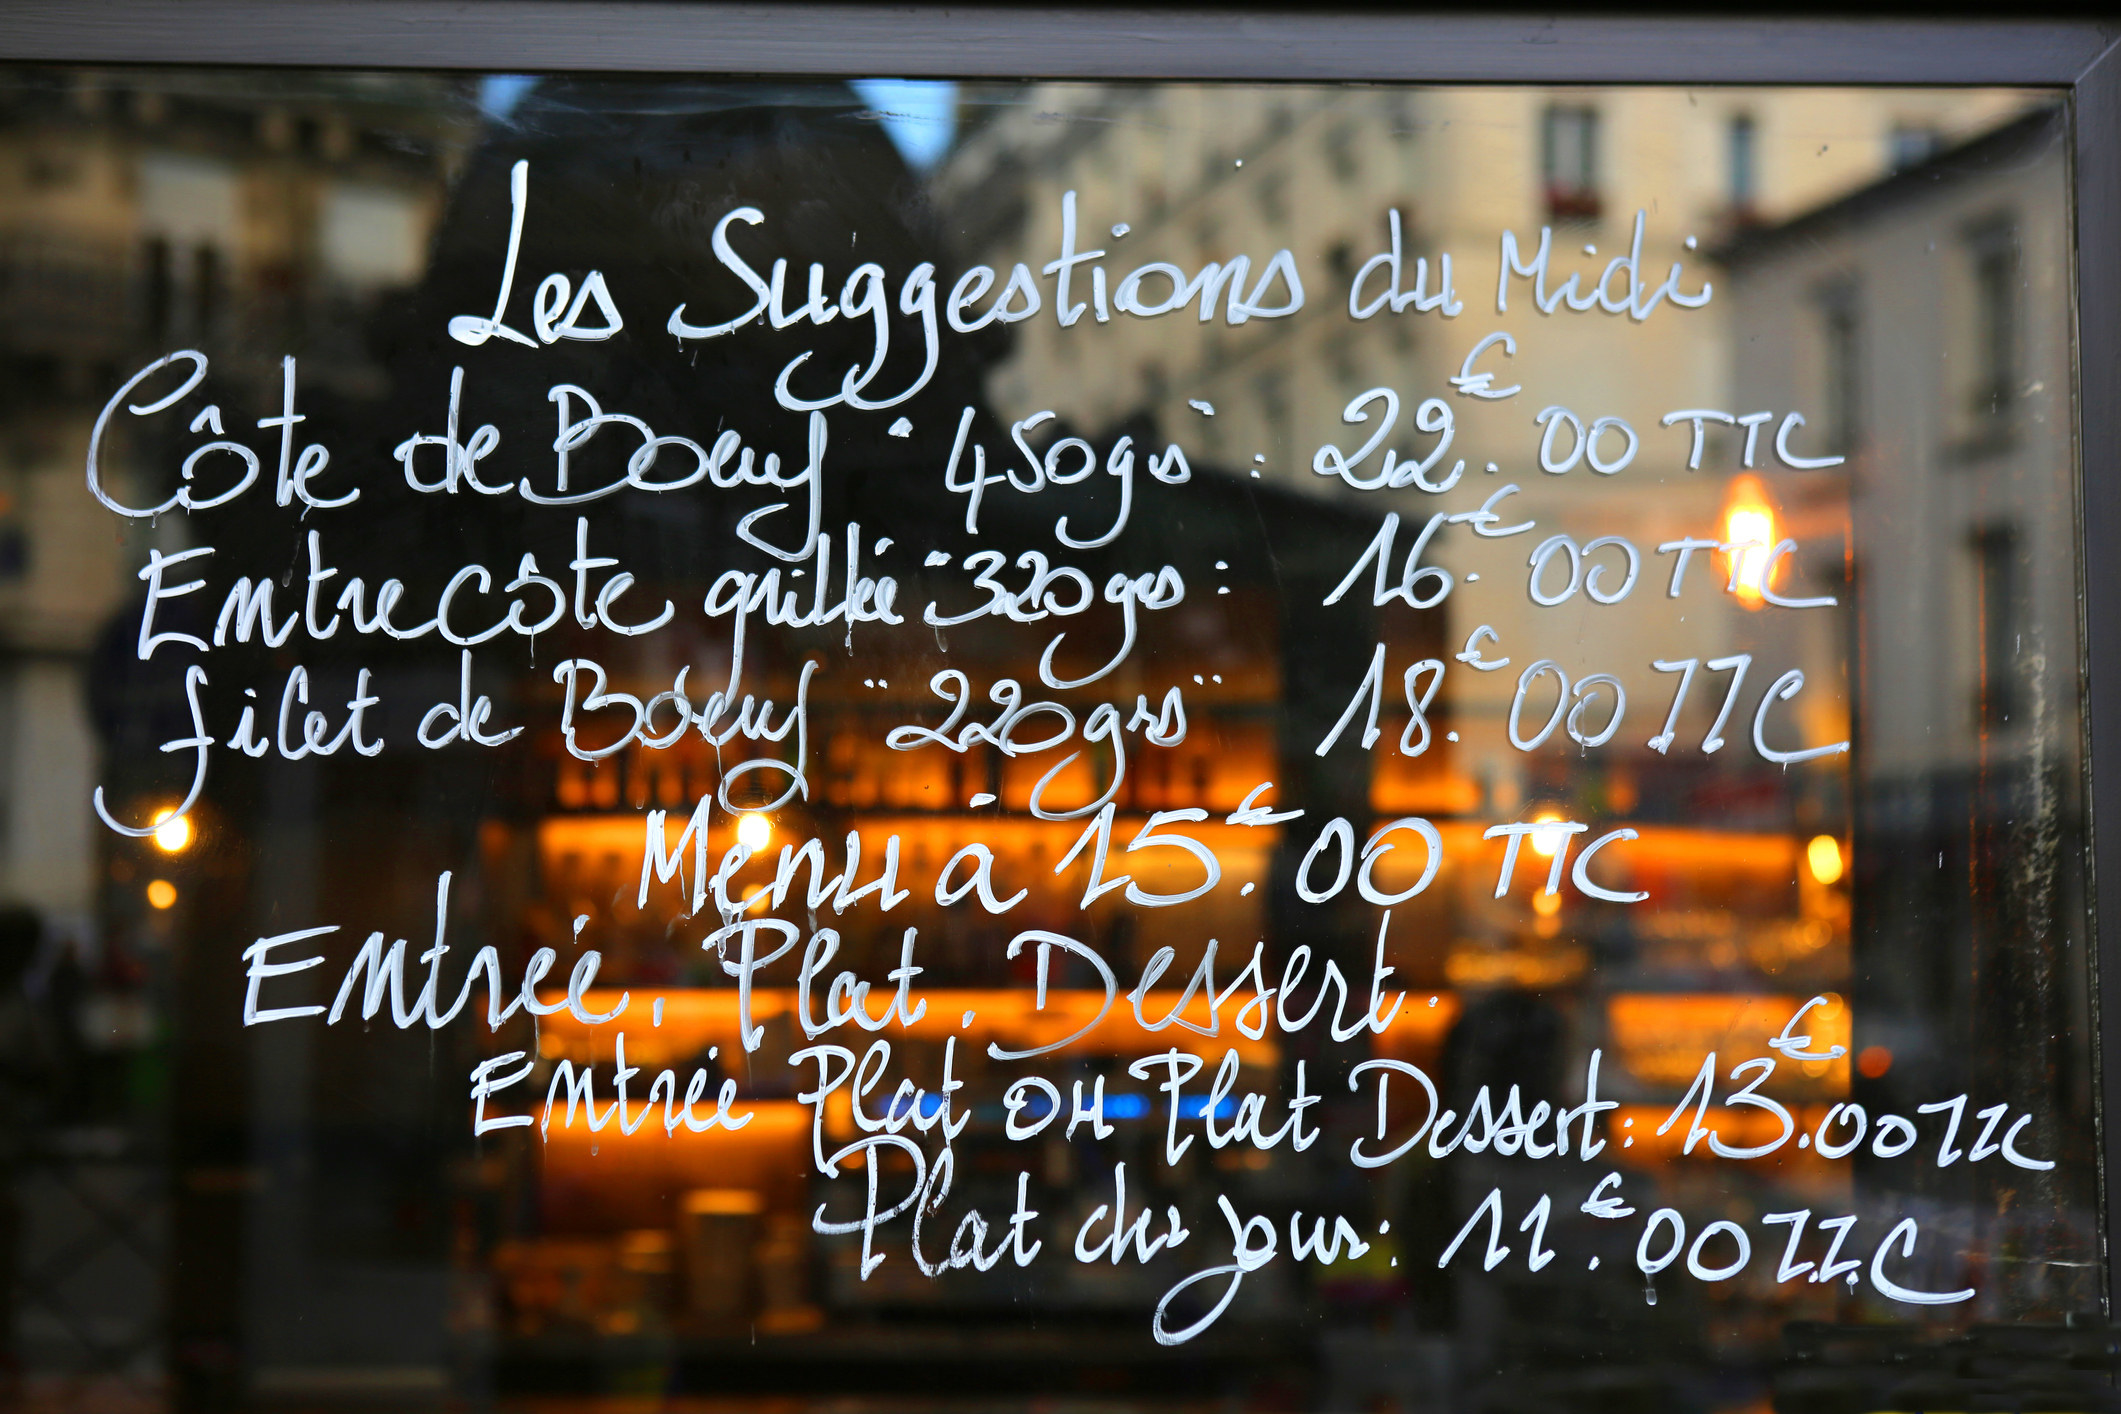 Les Suggestions du Midi
Côte de Boeuf "450grs" : 22.€00 TTC
Entrecôte grillée "320grs" : 16.€00 TTC
filet de Boeuf "220grs" 18.€00 TTC
Menu à 15.€00 TTC
Entrée, Plat, Dessert.
Entrée Plat ou Plat Dessert : 13.€00 TTC
Plat du jour : 11.€00 T.T.C